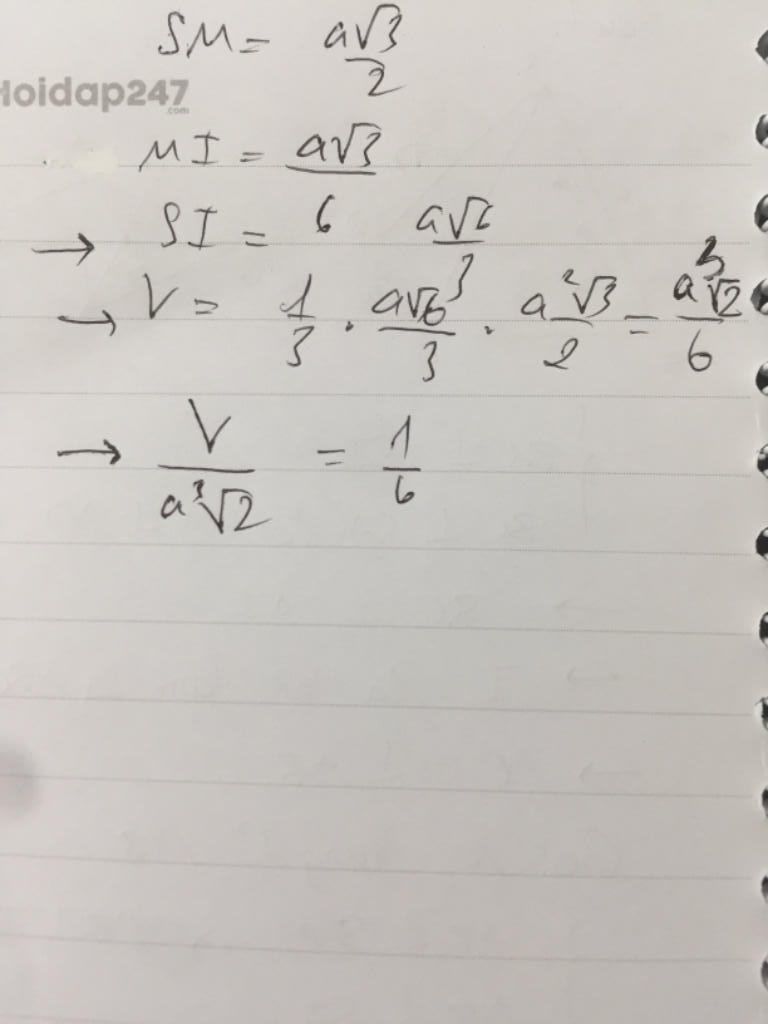 SM = a√3/2
Hoidap247
.com
MI = a√3/6
→ SI = a√6/3
→ V = 1/3 . a√6/3 . a²√3/2 = a³√2/6
→ V/a³√2 = 1/6